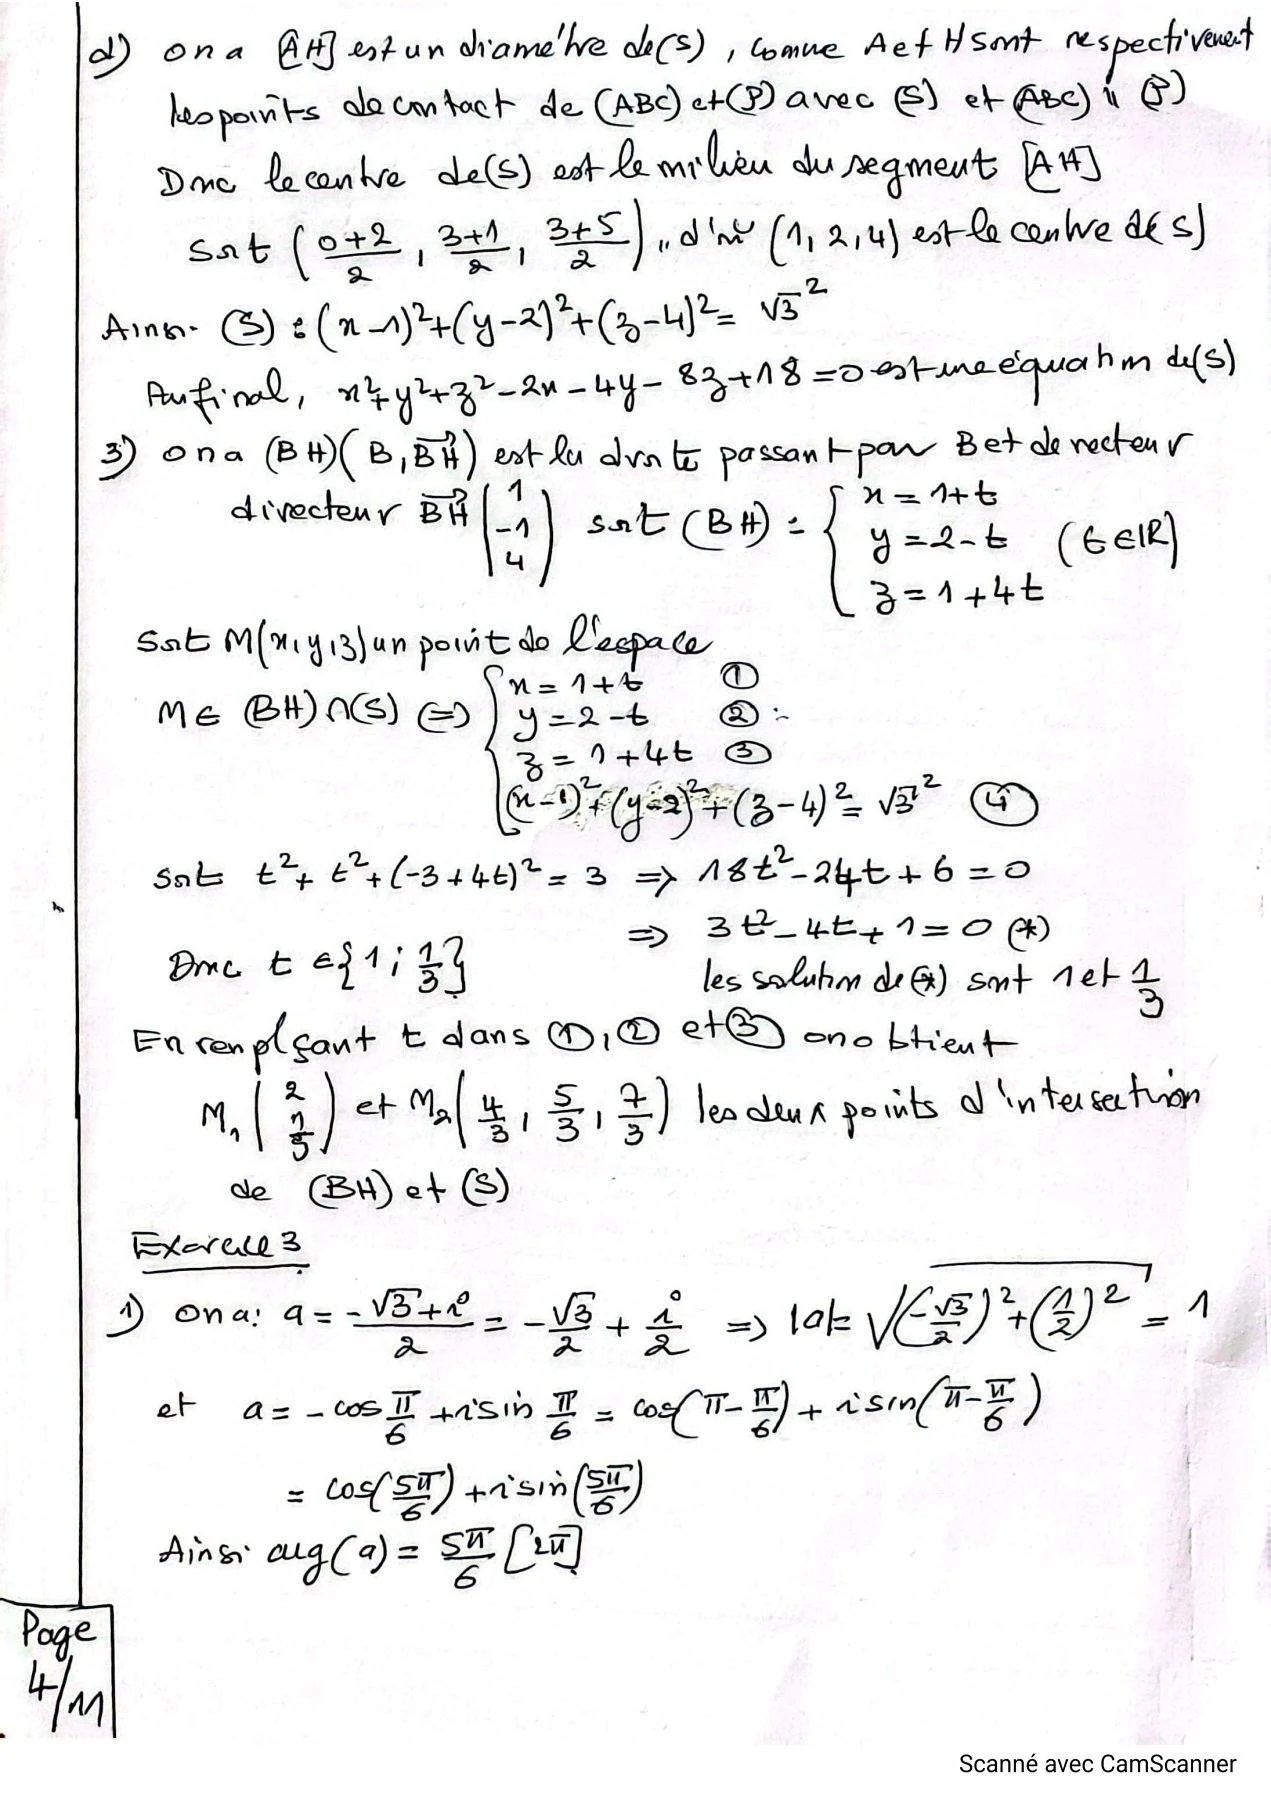 d) on a [AH] est un diamètre de (S), comme A et H sont respectivement
les points de contact de (ABC) et (P) avec (S) et (ABC) // (P)
Donc le centre de (S) est le milieu du segment [AH]
Soit (0+2/2, 3+1/2, 3+5/2), d'où (1, 2, 4) est le centre de (S)
Ainsi (S) : (x-1)²+(y-2)²+(z-4)² = √3²
Au final, x²+y²+z²-2x-4y-8z+18=0 est une équation de (S)
3) on a (BH)(B, BH⃗) est la droite passant par B et de vecteur
directeur BH⃗ (1, -1, 4) soit (BH) : { x = 1+t
y = 2-t (t∈IR)
z = 1+4t
Soit M(x,y,z) un point de l'espace
M∈ (BH)∩(S) ⇔ { x = 1+t ①
y = 2-t ②
z = 1+4t ③
(x-1)²+(y-2)²+(z-4)² = √3² ④
Soit t²+t²+(-3+4t)² = 3 ⇒ 18t²-24t+6=0
⇒ 3t²-4t+1=0 (*)
Donc t ∈{1 ; 1/3} les solution de (*) sont 1 et 1/3
En remplçant t dans ①, ② et ③ on obtient
M₁(2, 1, 5) et M₂(4/3, 5/3, 7/3) les deux points d'intersection
de (BH) et (S)
Exercice 3
1) on a: a = -√3+i/2 = -√3/2 + i/2 ⇒ |a|= √((-√3/2)²+(1/2)²) = 1
et a = -cos π/6 + i sin π/6 = cos(π-π/6) + i sin(π-π/6)
= cos(5π/6) + i sin(5π/6)
Ainsi arg(a) = 5π/6 [2π]
Page
4/11
Scanné avec CamScanner